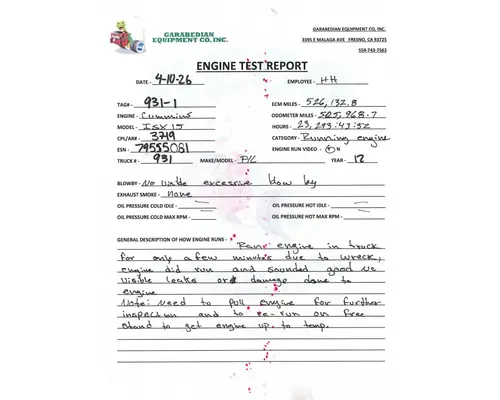 GARABEDIAN
EQUIPMENT CO, INC.
GARABEDIAN EQUIPMENT CO, INC.
3395 E MALAGA AVE FRESNO, CA 93725
559-743-7563
ENGINE TEST REPORT
DATE - 4-10-26 EMPLOYEE - HH
TAG# - 931-1 ECM MILES - 526,132.8
ENGINE - Cummins ODOMETER MILES - 525,968.7
MODEL - ISX 15 HOURS - 23,293:43:52
CPL/AR# - 3719 CATEGORY - Running engine
ESN - 79555081 ENGINE RUN VIDEO -
TRUCK # - 931 MAKE/MODEL - P/L YEAR - 12
BLOWBY - No visible excessive blow by
EXHAUST SMOKE - None
OIL PRESSURE COLD IDLE - OIL PRESSURE HOT IDLE -
OIL PRESSURE COLD MAX RPM - OIL PRESSURE HOT MAX RPM -
GENERAL DESCRIPTION OF HOW ENGINE RUNS - Rane engine in truck
for only a few minutes due to wreck,
engine did run and sounded good No
visible leaks or damage done to
engine
Note: Need to pull engine for further
inspection and to re-run on free
stand to get engine up to temp.